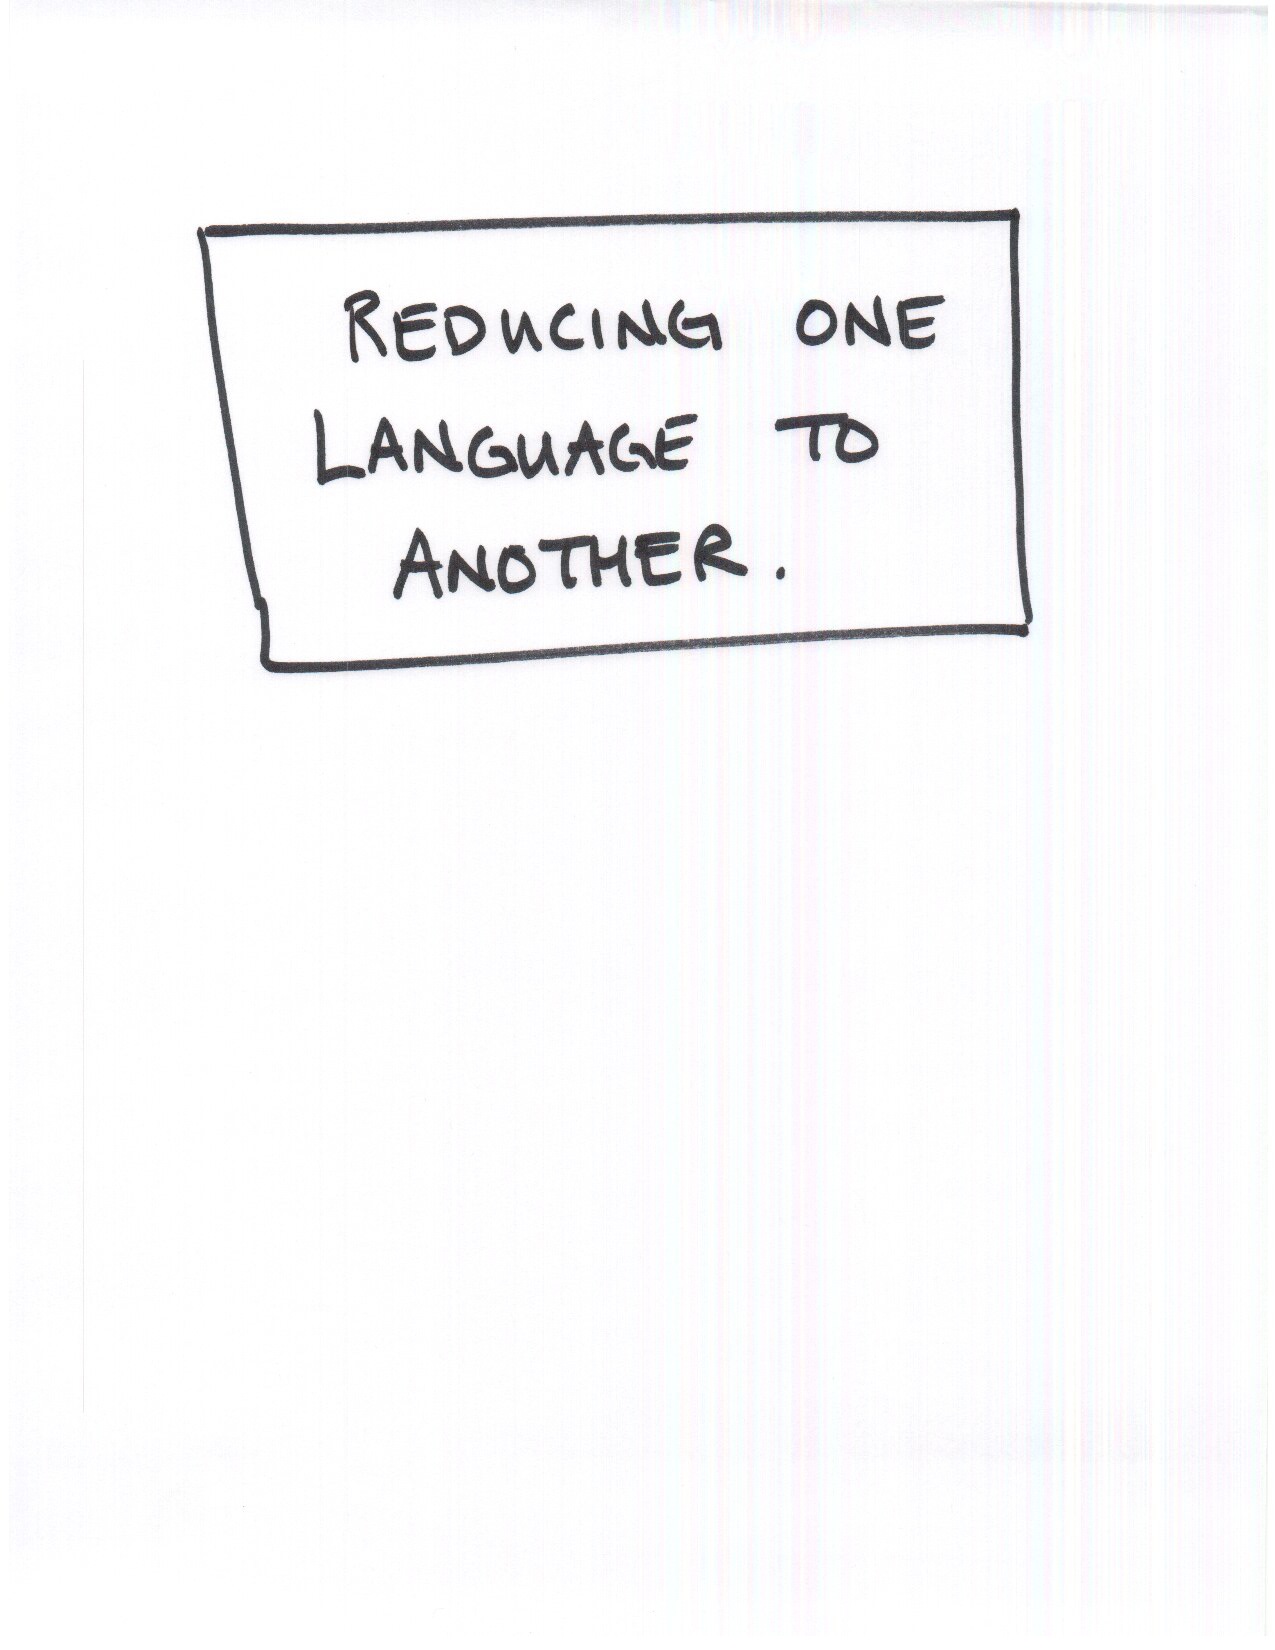 REDUCING ONE
LANGUAGE TO
ANOTHER.